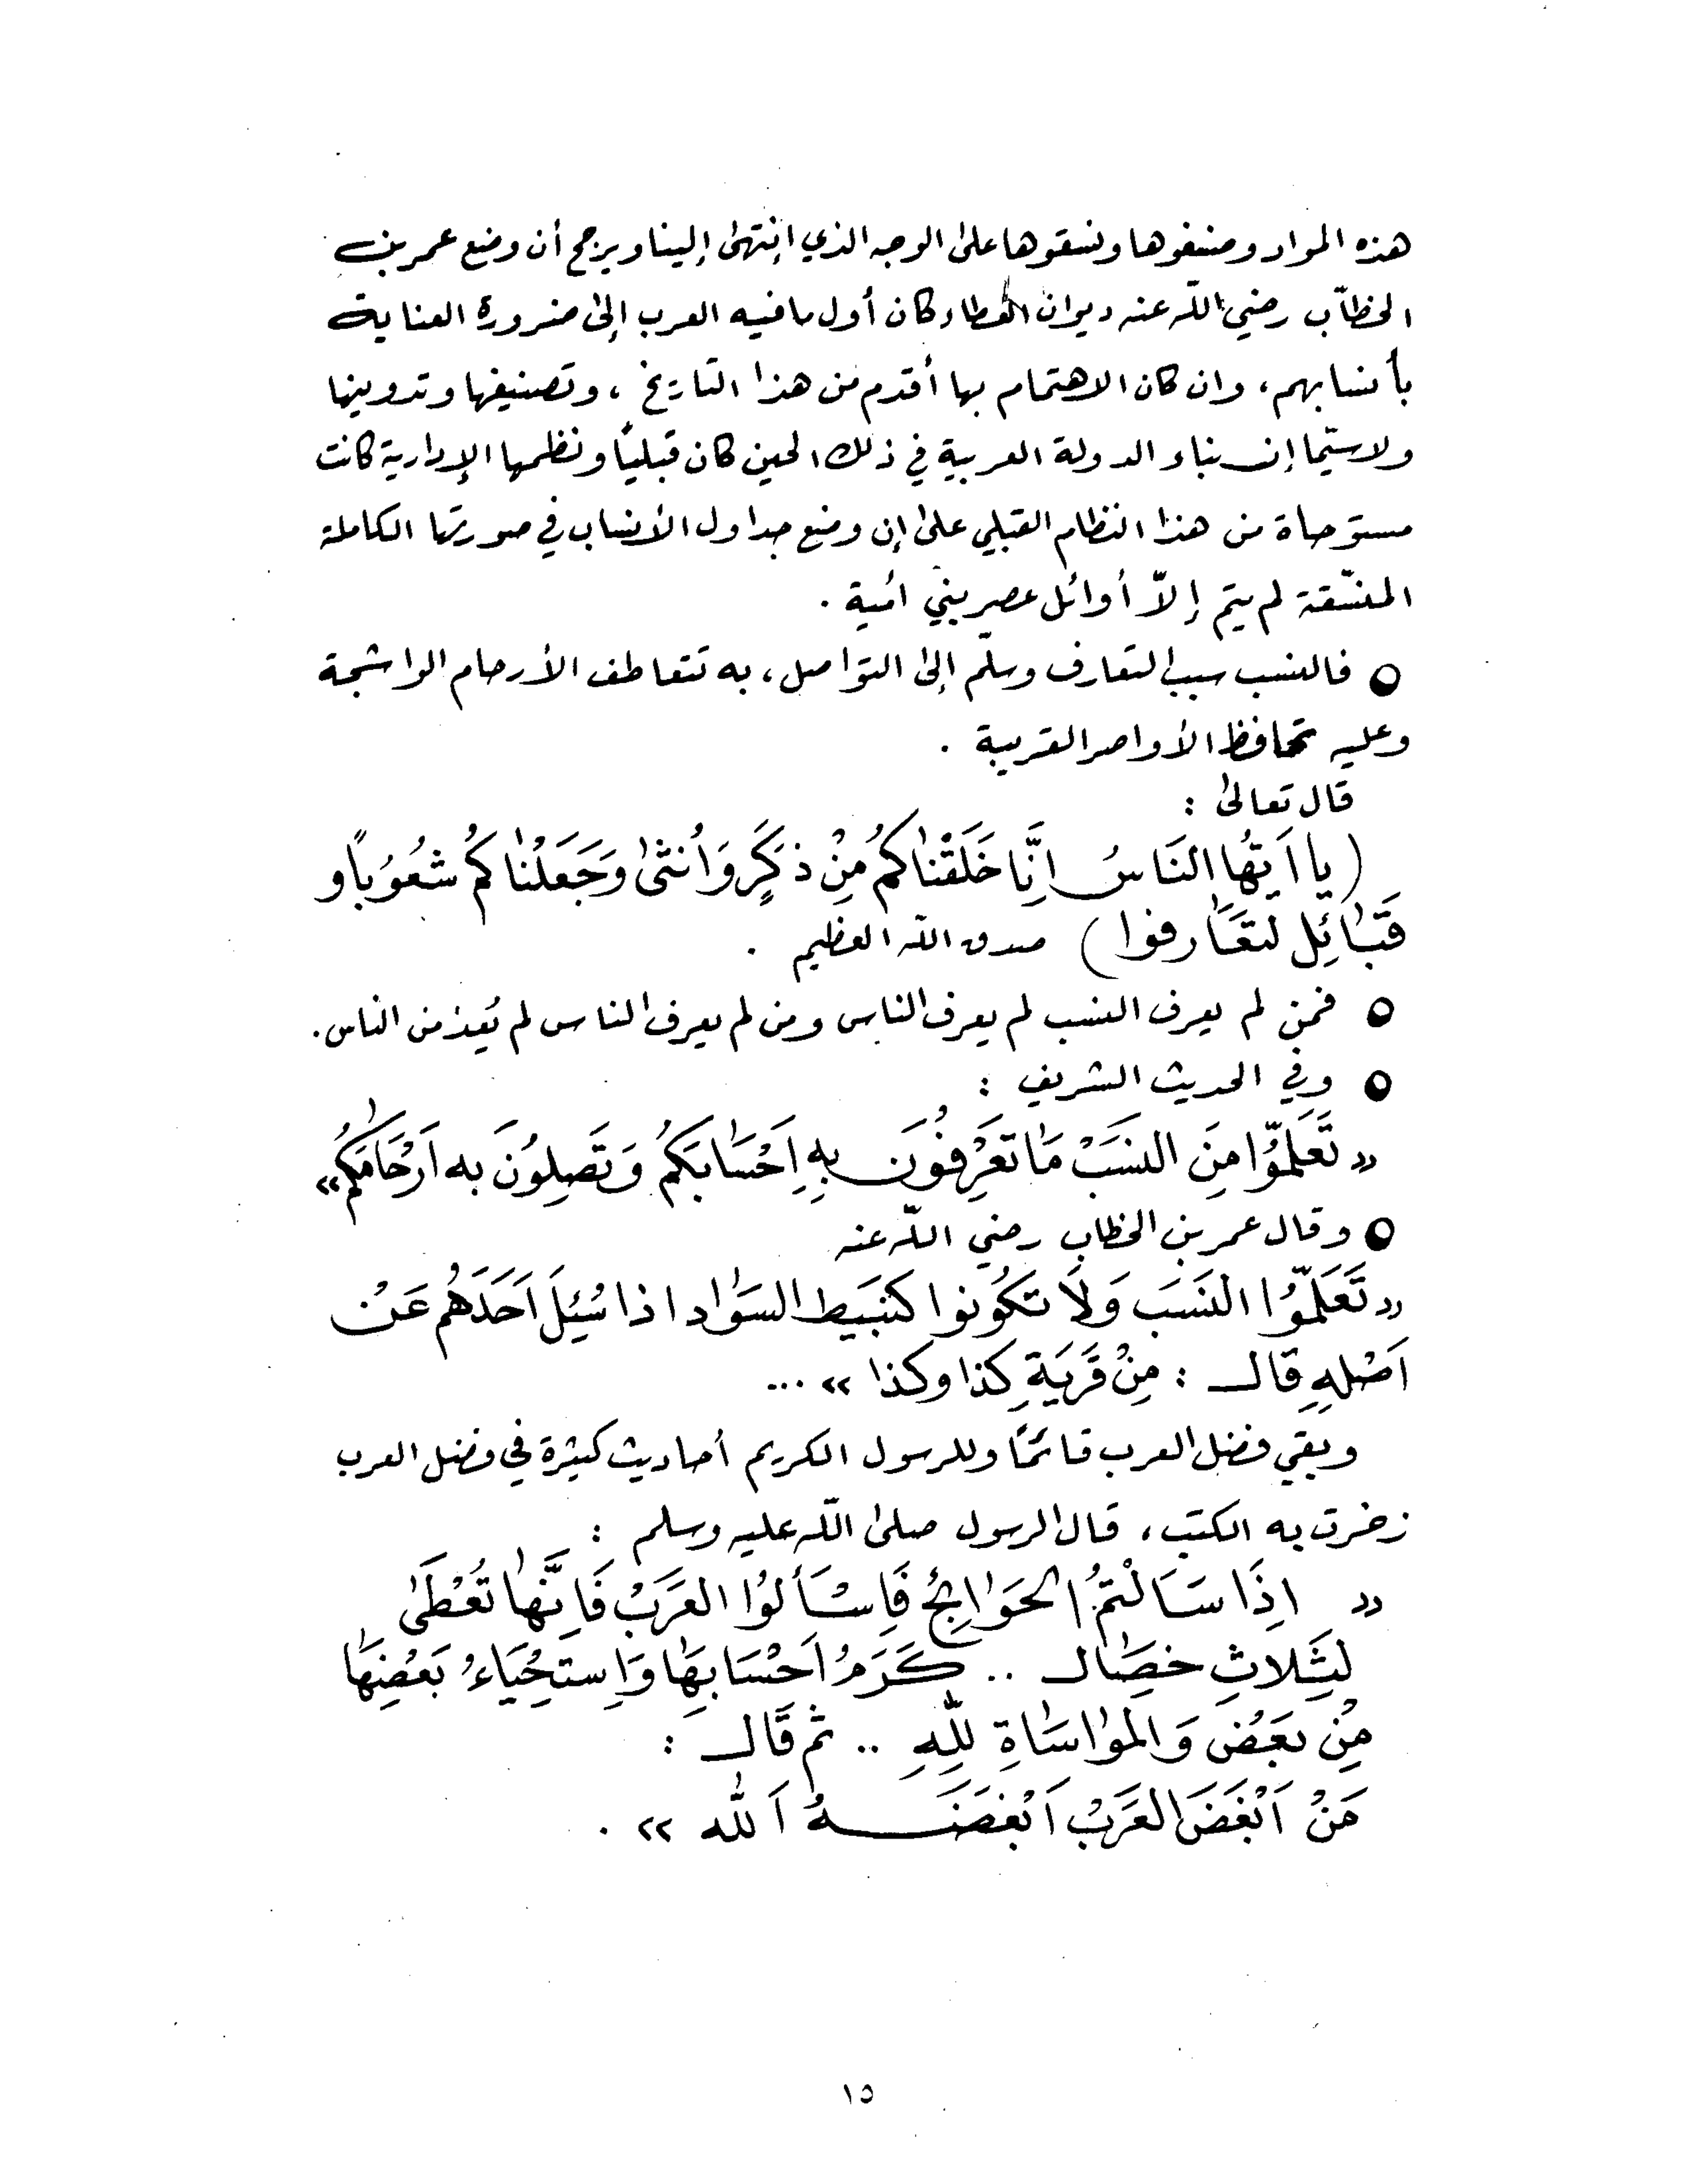 هذه المواد وصنفوها ونسقوها على الوجه الذي انتهى إلينا ويرجح أن وضع عمر بن
الخطاّب رضي الله عنه ديوان العطاء كان أول ما فيه العرب إلى ضرورة العناية
بأنسابهم، وان كان الاهتمام بها أقدم من هذا التاريخ ، وتصنيفها وتدوينها
ولاسيّما إن بناء الدولة العربية في ذلك الحين كان قبلياً ونظمها الإدارية كانت
مستوحاة من هذا النظام القبلي على إن وضع جداول الأنساب في صورتها الكاملة
المنسّقة لم يتم إلاّ أوائل عصر بني أمية .
o فالنسب سبب التعارف وسلّم إلى التواصل، به تتعاطف الأرحام الواشجة
وعليه تحافظ الأواصر القريبة .
قال تعالى :
(يا اَيّهُا النَاسُ اِنَّا خَلَقْناكُمُ مِنْ ذكَرٍ وَاُنثى وَجَعَلْناكُم شعُوُباً و
قَبَائِل لتعَارفوا) صدق الله العظيم .
o فمن لم يعرف النسب لم يعرف الناس ومن لم يعرف الناس لم يُعد من الناس.
o وفي الحديث الشريف :
« تَعَلمّوُا مِنَ النسَبْ مَا تعَرِفوُنَ بِهِ اَحْسَابَكمُ وَتَصِلوُنَ به اَرْحَامَكمُ»
o وقال عمر بن الخطاب رضي اللّه عنه
« تَعَلَمّوُا النَسَبَ وَلاَ تكوُنوا كنبَيَط السَوَاد اذا سُئِلَ اَحَدَهُم عَنْ
اَصْلِهِ قال : مِنْ قَريَةِ كذا وكذا » ...
وبقي فضل العرب قائمًا وللرسول الكريم أحاديث كثيرة في فضل العرب
زخرت به الكتب، قال الرسول صلى اللّه عليه وسلم :
« اِذَا سَاَلْتمُ الحوَائجْ فَاِسْأَلوُا العَرَبْ فَاِنَّها تُعْطَى
لِثَلاثِ خِصَال .. كَرَمُ اَحْسَابِهَا وَاِستَحْيَاءُ بَعْضِهَا
مِنْ بَعَضْ وَالموَاسَاةِ للِّهِ .. ثم قَال :
مَنْ اَبْغَضَ العَرَبْ اَبْغضَهُ اَلله » .
١٥